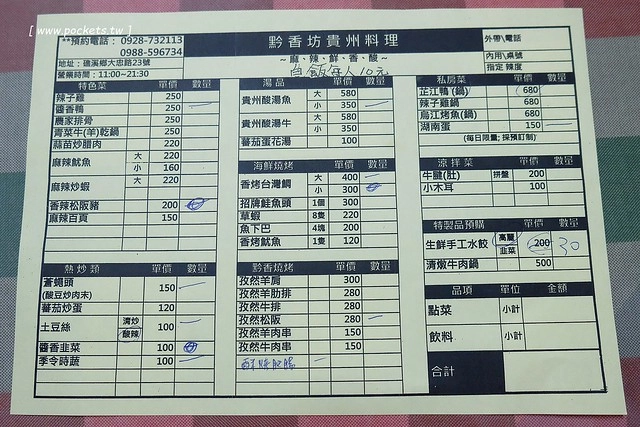 [ www.pockets.tw ]
**預約電話: 0928-732113
0988-596734
地址:礁溪鄉大忠路23號
營業時間:11:00~21:30
黔香坊貴州料理
~麻、辣、鮮、香、酸~
白飯每人10元
外帶\電話
內用\桌號
指定 辣度
特色菜 單價 數量
辣子雞 250
醬香鴨 250
農家排骨 250
青菜牛(羊)乾鍋 250
蒜苗炒臘肉 220
麻辣魷魚 大 220
小 160
麻辣炒蝦 大 220
香辣松阪豬 200
麻辣百頁 150
熱炒類 單價 數量
蒼蠅頭 150
(酸豆炒肉末)
蕃茄炒蛋 120
土豆絲 清炒 100
酸辣
醬香韭菜 100
季令時蔬 100
湯品 單價 數量
貴州酸湯魚 大 580
小 350
貴州酸湯牛 大 580
小 350
蕃茄蛋花湯 100
海鮮燒烤 單價 數量
香烤台灣鯛 大 400
小 300
招牌鮭魚頭 1個 300
草蝦 8隻 220
魚下巴 4塊 200
香烤魷魚 1隻 120
黔香燒烤 單價 數量
孜然羊肩 300
孜然羊肋排 280
孜然牛排 280
孜然松阪 280
孜然羊肉串 150
孜然牛肉串 150
私房菜 單價 數量
芷江鴨 (鍋) 680
辣子雞鍋 680
烏江烤魚(鍋) 680
湖南蛋 150
(每日限量; 採預訂制)
涼拌菜 單價 數量
牛腱(肚) 拼盤 200
小木耳 100
特製品預購 單價 數量
生鮮手工水餃 高麗 200 30
韭菜
清燉牛肉鍋 500
品項 單位 金額
點菜 小計
飲料 小計
合計